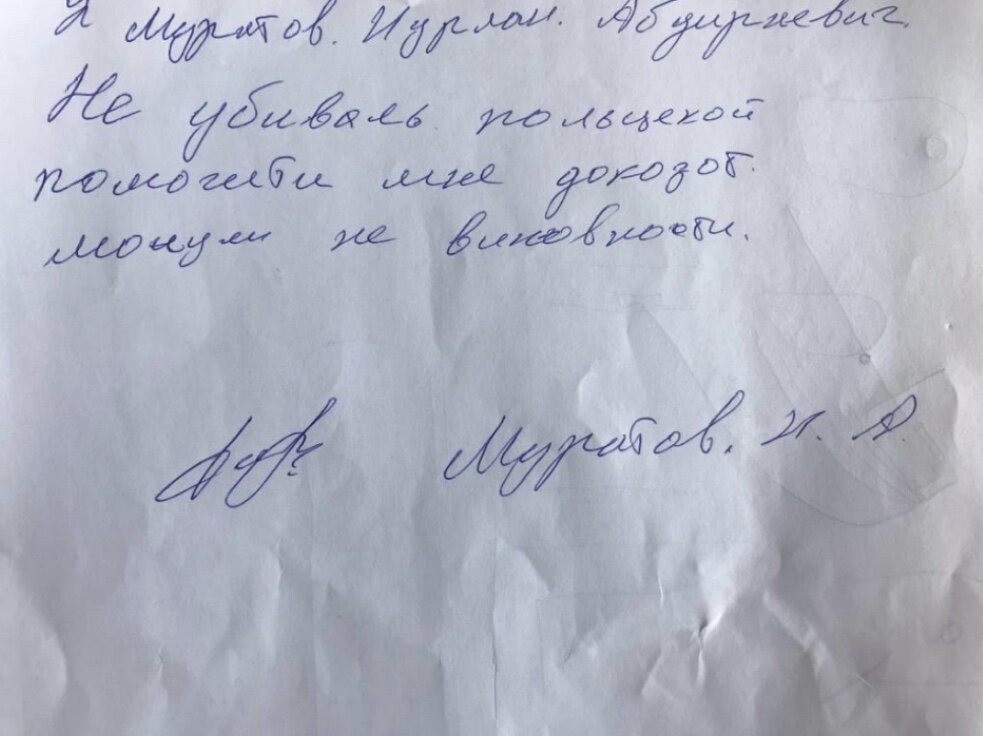 Я Муратов. Нурлан. Абдиржевич.
Не убиваль польцекой
помогити мне докозот.
монули не виновности.
Муратов. Н. А.